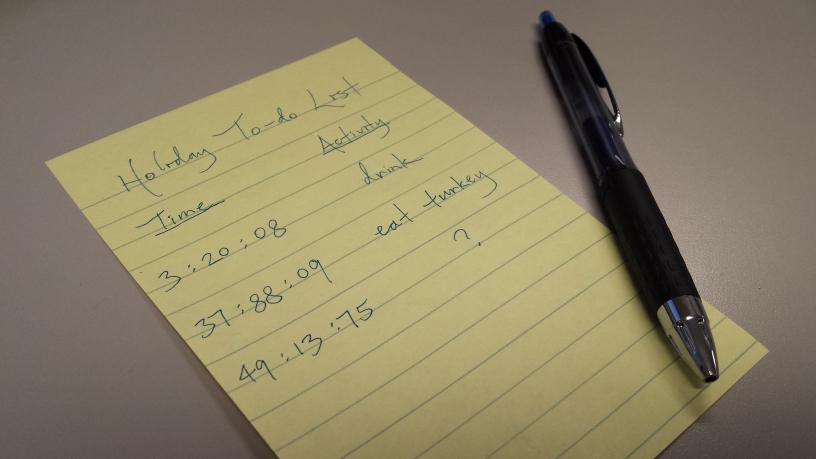 Holiday To-do List
Time Activity
3:20:08 drink
37:88:09 eat turkey
49:13:75 ?.